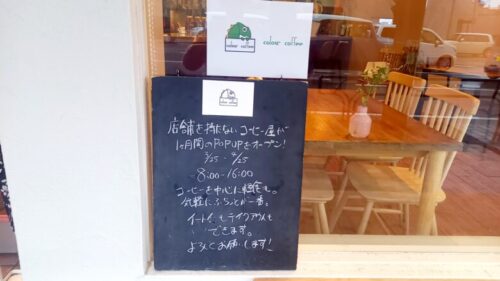 colour coffee
colour coffee
店舗を持たないコーヒー屋が
1ヶ月間のPOPUPをオープン!
3/25 4/25
8:00-16:00
コーヒーを中心に軽食も。
気軽にふらっとが一番。
イートインもテイクアウトも
できます。
よろしくお願いします!